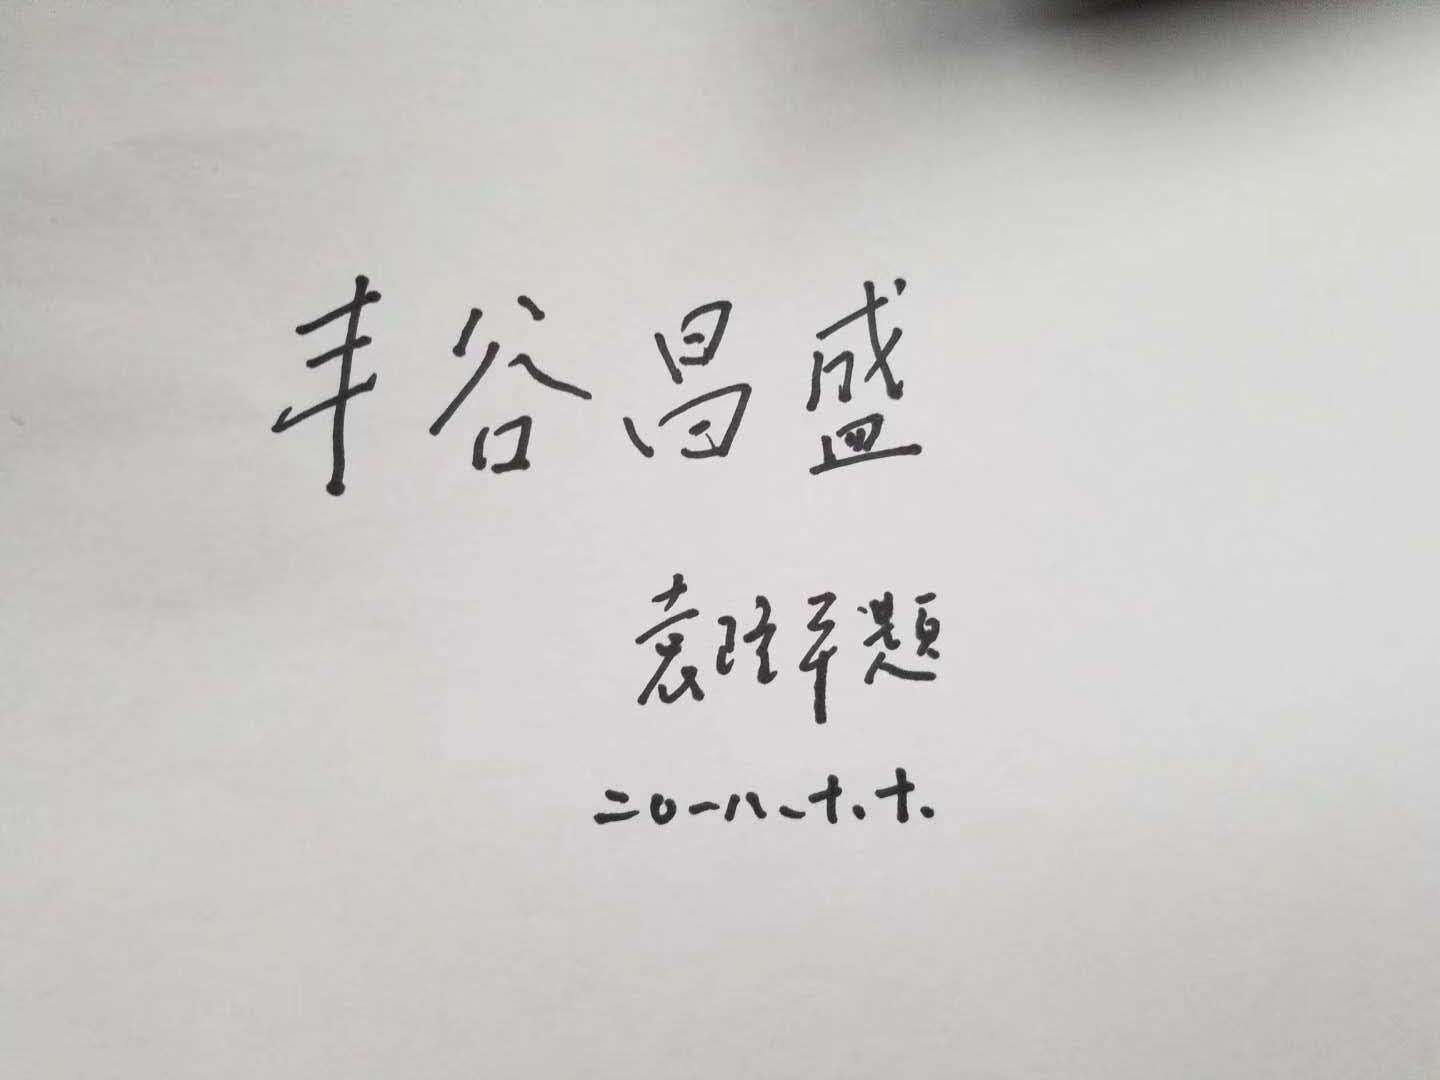 丰谷昌盛
袁隆平题
二〇一八、十、十、